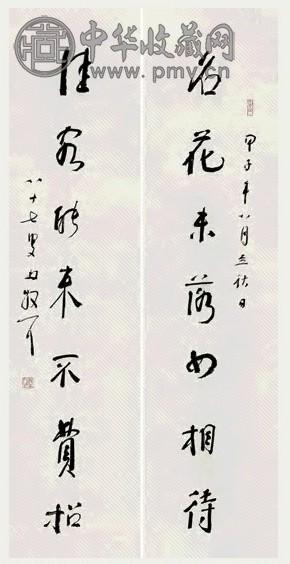 中华收藏网
www.pmy.cn
甲子年八月立秋日
名花未落如相待
佳客能来不費招
八十七叟林散耳